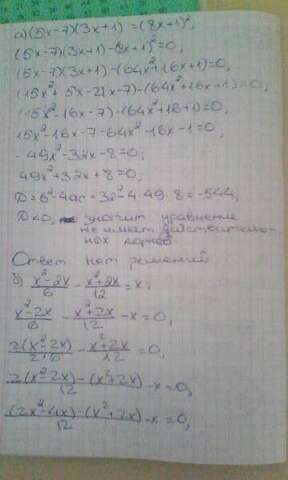 а)(5x-7)(3x+1)=(8x+1)²,
(5x-7)(3x+1)-(8x+1)²=0,
(5x-7)(3x+1)-(64x²+16x+1)=0,
(15x²+5x-21x-7)-(64x²+16x+1)=0,
(15x²-16x-7)-(64x²+16+1)=0,
15x²-16x-7-64x²-16x-1=0,
-49x²-32x-8=0;
49x²+32x+8=0;
D=b²-4ac=32²-4·49·8=-544,
D<0, значит уравнение
не имеет действитель-
ных корней
Ответ нет решений
б) (x²-2x)/6 - (x²+2x)/12 = x,
(x²-2x)/6 - (x²+2x)/12 - x=0,
2(x²-2x)/2·6 - (x²+2x)/12 =0,
(2(x²-2x)-(x²+2x))/12 - x=0,
((2x²-4x)-(x²+2x))/12 - x=0,